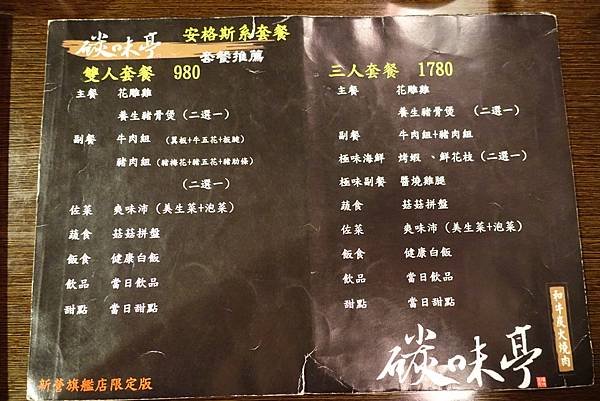 碳味亭
安格斯系套餐
套餐推薦
雙人套餐 980
主餐 花雕雞
養生豬骨煲 (二選一)
副餐 牛肉組 (翼板+牛五花+板腱)
豬肉組 (豬梅花+豬五花+豬肋條)
(二選一)
佐菜 爽味沛 (美生菜+泡菜)
蔬食 菇菇拼盤
飯食 健康白飯
飲品 當日飲品
甜點 當日甜點
新營旗艦店限定版
三人套餐 1780
主餐 花雕雞
養生豬骨煲 (二選一)
副餐 牛肉組+豬肉組
極味海鮮 烤蝦、鮮花枝 (二選一)
極味副餐 醬燒雞腿
蔬食 菇菇拼盤
佐菜 爽味沛 (美生菜+泡菜)
飯食 健康白飯
飲品 當日飲品
甜點 當日甜點
和牛炭火燒肉
碳味亭